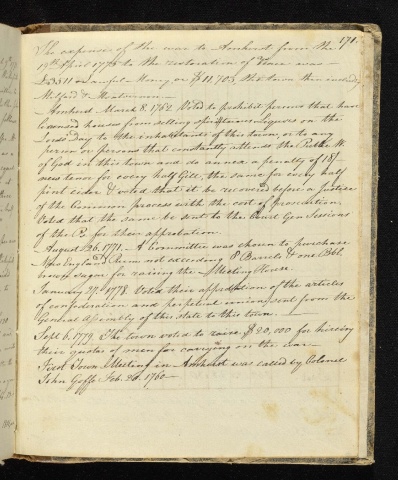 171.
The expenses of the war to Amherst from the
19th April 1775 to the restoration of Peace was
£3511 Lawful Money or $11,703, the town then includg
Milford &
Amherst March 8. 1762 Voted to prohibit persons that have
licensed houses from selling spirituous Liquors on the
Lords Day to the inhabitants of this town, or to any
person or persons that constantly attends the Public W.
of God in this town and do annex a penalty of 18/
new tenor for every half Gill, the same for every half
pint cider & voted that it be recovered before a Justice
of the Common process with the cost of prosecution
Voted that the same be sent to the Court Gen Sessions
of the P. for their approbation.
August 26. 1771. A Committee was chosen to purchase
New England Rum not exceeding 8 Barrels & one Bbl.
brown sugar for raising the Meeting House.
January 1778 Voted their approbation of the articles
of confederation and perpetual union sent from the
General Assembly of this state to this town.
Sept 6, 1779. The town voted to raise $20,000 for hireing
their quotas of men for carrying on the war
First Town Meeting in Amherst was called by Colonel
John Goffe Feb. 1760